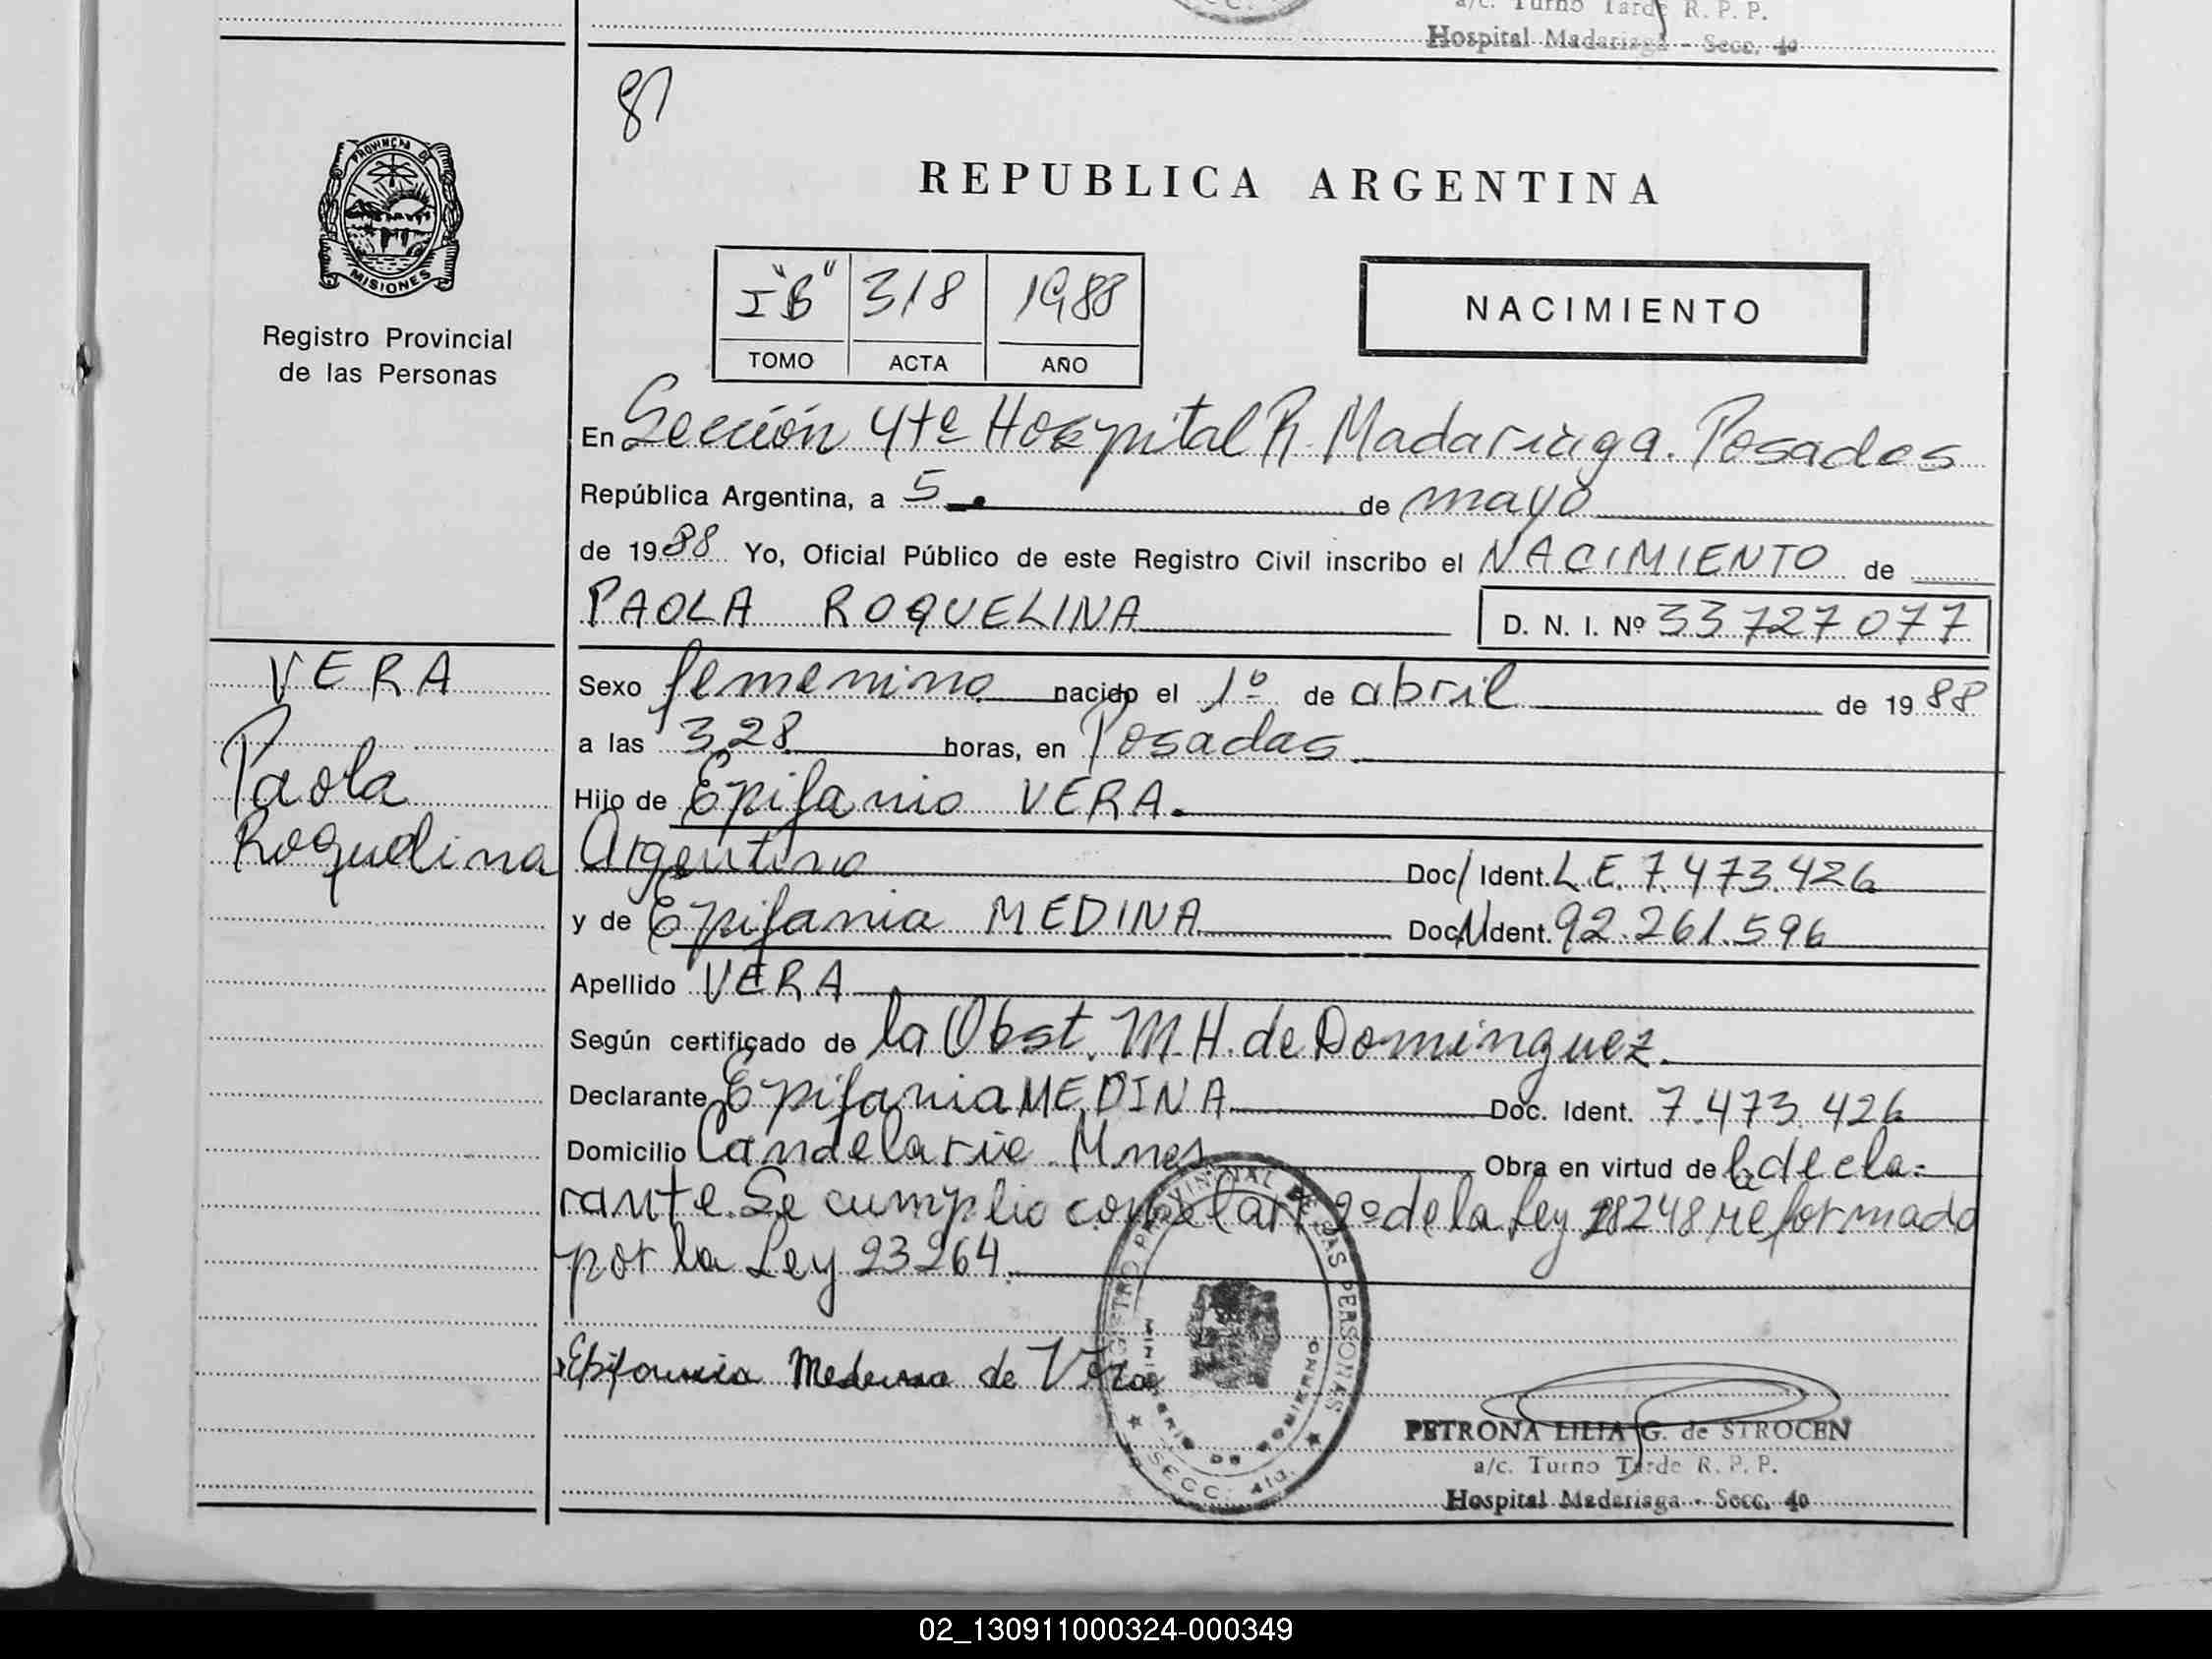 a/c. Turno Tarde R. P. P.
Hospital Madariaga - Secc. 4o
87
PROVINCIA DE
MISIONES
Registro Provincial
de las Personas
REPUBLICA ARGENTINA
I "B" 318 1988
TOMO ACTA AÑO
NACIMIENTO
En Sección 4ta Hospital R. Madariaga. Posadas
República Argentina, a 5 de mayo
de 1988 Yo, Oficial Público de este Registro Civil inscribo el NACIMIENTO de
PAOLA ROQUELINA D. N. I. Nº 33727077
VERA
Paola
Roquelina
Sexo femenino nacido el 1º de abril de 1988
a las 3,28 horas, en Posadas
Hijo de Epifanio VERA.
Argentino Doc/ Ident. L.E. 7.473.426
y de Epifania MEDINA Doc. N Ident. 92.261.596
Apellido VERA
Según certificado de la Obst. M.H. de Dominguez.
Declarante Epifania MEDINA Doc. Ident. 7.473.426
Domicilio Candelaria Mnes Obra en virtud de la decla-
rante. Se cumplio con el art 2º de la Ley 18248 reformado
por la Ley 23264
Epifania Medina de Vera
REGISTRO PROVINCIAL DE LAS PERSONAS
MINISTERIO DE GOBIERNO
SECC. 4ta.
PETRONA LILIA G. de STROCEN
a/c. Turno Tarde R. P. P.
Hospital Madariaga - Secc. 4o
02_130911000324-000349